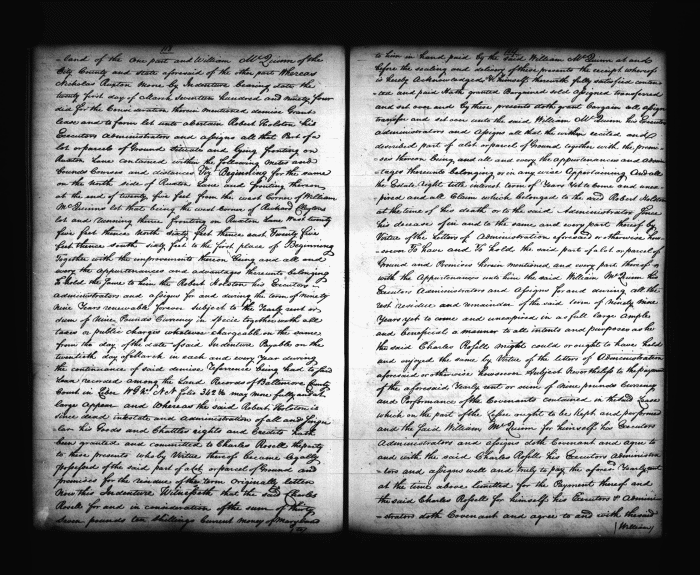 land of the one part and William McQuinn of the
City County and state aforesaid of the other part Whereas
Nicholas Ruxton Moore by Indenture bearing date the
twenty first day of March Seventeen hundred and ninety four
did for the Consideration therein Contained demise Grant
Lease and to farm let unto a certain Robert Holston his
Executors Administrators and assigns all that Part of a
Lot or parcels of Ground situate and Lying fronting on
Ruxton Lane contained within the following metes and
bounds Courses and distances Viz Beginning for the same
on the North side of Ruxton Lane and fronting thereon
at the end of twenty five feet from the west Corner of William
McQuinns lot that being the west Corner of Richard
lot and Running thence fronting on Ruxton Lane West twenty
five feet thence North sixty feet thence east Twenty five
feet thence South sixty feet to the first place of Beginning
Together with the improvements thereon being and all and
every the appurtenances and advantages thereunto belonging
To hold the same to him the Robert Holston his Executors
administrators and assigns for and during the term of Ninety
Nine Years renewable forever Subject to the Yearly rent or
sum of Nine Pounds Currency in Specie together with all
taxes or public charges whatever chargeable on the same
from the day of the date of said Indenture Payable on the
twentieth day of March in each and every Year during
the continuance of said demise reference being had to said
Lease recorded among the Land Records of Baltimore County
Court in Liber W G No NN folio 342 &c may more fully and at
large appear and Whereas the said Robert Holston is
since dead intestate and administration of all and singu
lar his Goods and Chattles rights and Credits hath
been granted and committed to Charles Rosell the party
to these presents who by Virtue thereof became legally
possessed of the said part of a lot or parcel of Ground and
premises for the residue of the term originally letten
Now this Indenture Witnesseth that the said Charles
Rosell for and in consideration of the sum of thirty
seven pounds ten shillings Current money of Maryland
to him in hand paid by the said William McQuinn at and
before the sealing and delivery of these presents the receipt whereof
is hereby Acknowledged & himself therewith fully satisfied conten
ted and paid Hath granted Bargained sold assigned transferred
and set over and by these presents doth grant bargain sell assign
transfer and set over unto the said William McQuinn his Executors
administrators and Assigns all that the within recited and
described part of a lot or parcel of Ground together with the premi
ses thereon being and all and every the appurtenances and advan
tages thereunto belonging or in any wise Appertaining And all
the Estate right title interest term of Years Yet to come and unex
pired and all Claim which belonged to the said Robert Holston
at the time of his death or to the said Administrator since
his decease of in and to the same and every part thereof by
Virtue of the Letters of Administration aforesaid or otherwise how
soever To have and To hold the said part of a lot or parcel of
Ground and Premises herein mentioned and every part thereof
with the Appurtenances unto him the said William McQuinn his
Executors Administrators and Assigns for and during all the
rest residue and remainder of the said term of Ninety nine
Years yet to come and unexpired in as full large ample
and beneficial a manner to all intents and purposes as he
the said Charles Rosell might could or ought to have held
and enjoyed the same by Virtue of the letters of Administration
aforesaid or otherwise howsoever Subject nevertheless to the payment
of the aforesaid Yearly rent or sum of nine pounds Currency
and Performance of the Covenants contained in the said Lease
which on the part of the Lessee ought to be Kept and performed
and the said William McQuinn for himself his Executors
Administrators and assigns doth Covenant and agree to
and with the said Charles Rosell his Executors Administra
tors and assigns well and truly to pay the aforesd Yearly rent
at the time above limitted for the Payment thereof and
the said Charles Rosell for himself his Executors & Admini
strators doth Covenant and agree to and with the said
(William)